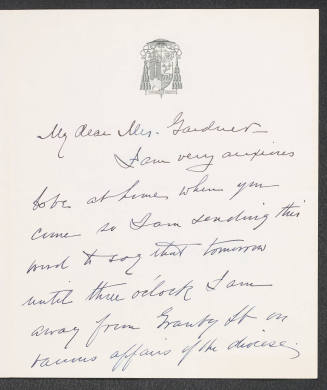 My dear Mrs. Gardner
I am very anxious
to be at home when you
come so I am sending this
word to say that tomorrow
until three o'clock I am
away from Granby St on
various affairs of the diocese.